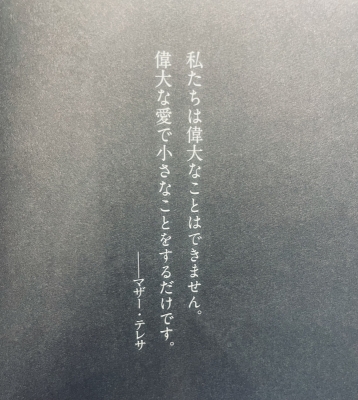 私たちは偉大なことはできません。
偉大な愛で小さなことをするだけです。
——マザー・テレサ